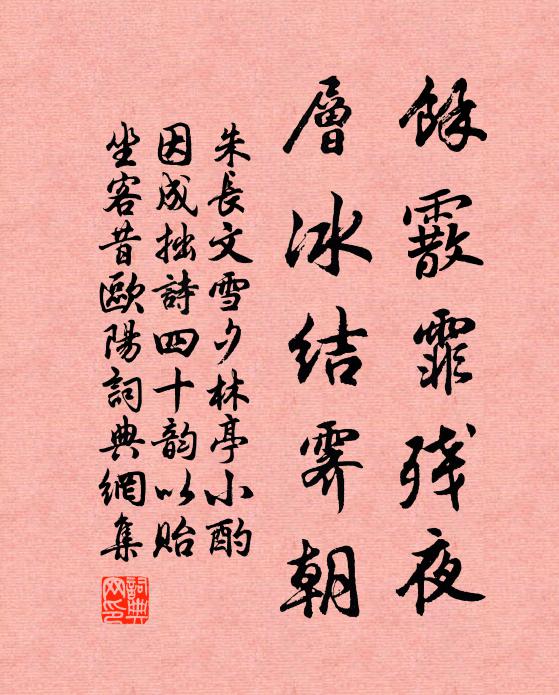 餘霰霏残夜
層冰结霽朝
朱長文雪夕林亭小酌
因成拙詩四十韵以贻
坐客昔歐陽詞典網集
詞典网印